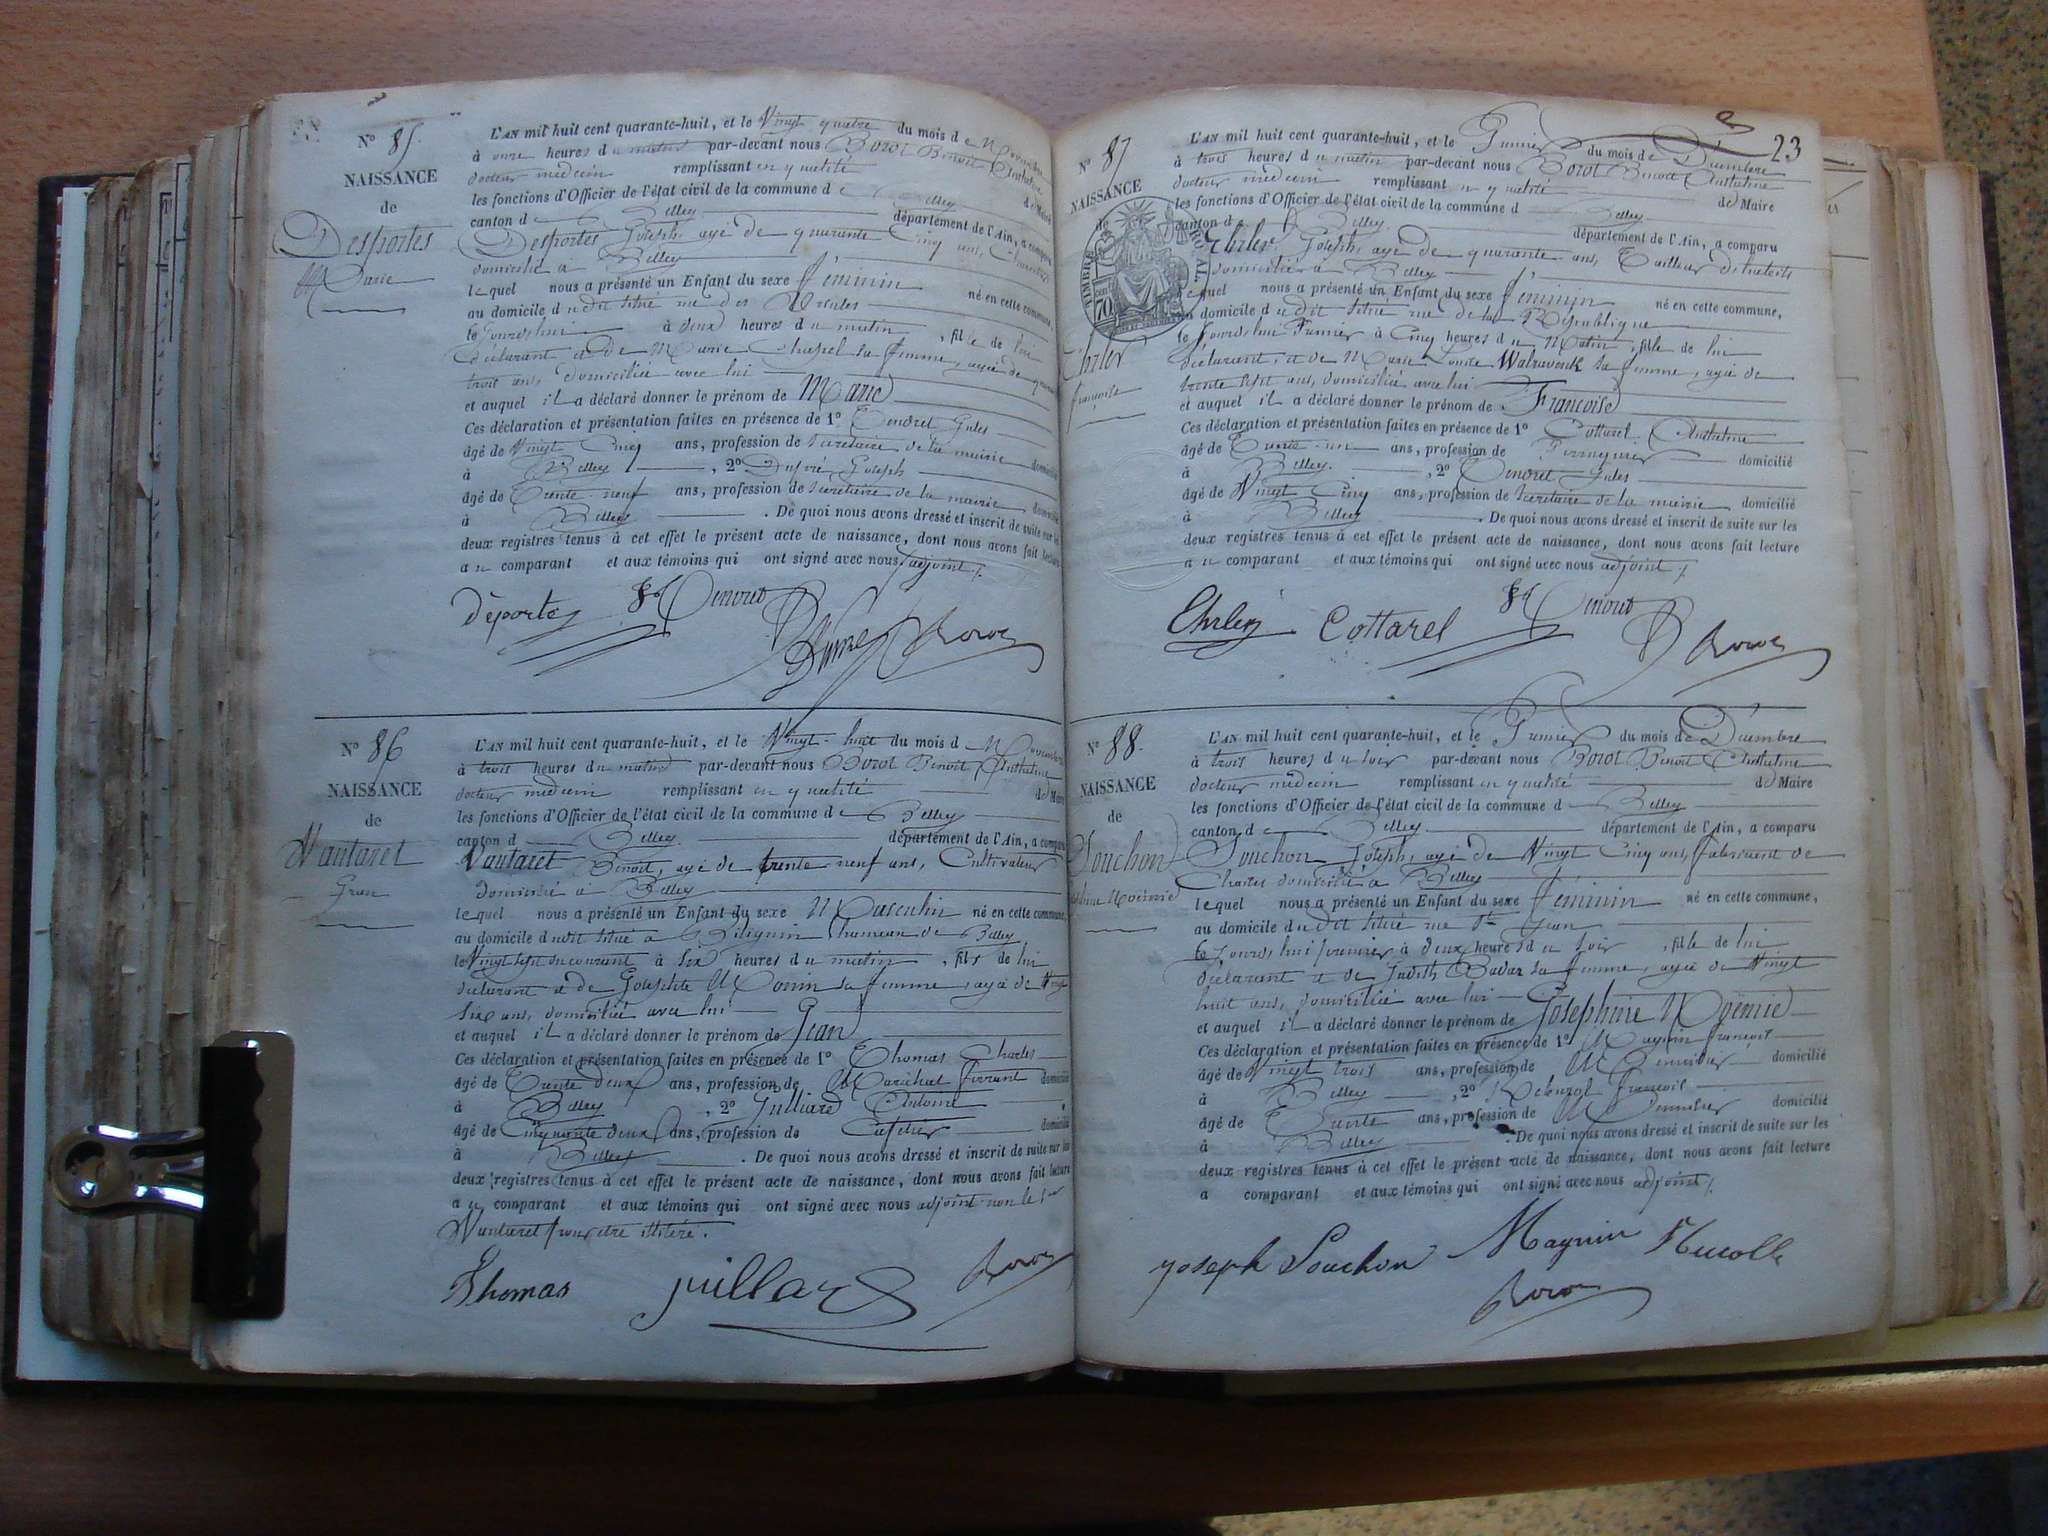 N° 85
NAISSANCE
de
Desportes
Marie
L'AN mil huit cent quarante-huit, et le Vingt quatre du mois de Novembre
à onze heures du matin par-devant nous Borot Benoit Anthelme
docteur médecin remplissant en qualité de Maire
les fonctions d'Officier de l'état civil de la commune de Belley
canton de Belley département de l'Ain, a comparu
Desportes Joseph, agé de quarante Cinq ans,
domicilié à Belley
lequel nous a présenté un Enfant du sexe féminin né en cette commune,
au domicile dudit situé rue des
le jourd'hui à deux heures du matin, fille de lui
déclarant et de Marie Chapel sa femme, agée de
trois ans, domiciliée avec lui
et auquel il a déclaré donner le prénom de Marie
Ces déclaration et présentation faites en présence de 1° Tendret Jules
âgé de Vingt Cinq ans, profession de secrétaire de la mairie domicilié
à Belley, 2° Dupré Joseph
âgé de Trente-neuf ans, profession de secrétaire de la mairie domicilié
à Belley. De quoi nous avons dressé et inscrit de suite sur les
deux registres tenus à cet effet le présent acte de naissance, dont nous avons fait lecture
au comparant et aux témoins qui ont signé avec nous adjoint /.
déportes Tendret Borot
N° 86
NAISSANCE
de
Vautaret
Jean
L'AN mil huit cent quarante-huit, et le Vingt-huit du mois de Novembre
à trois heures du matin par-devant nous Borot Benoit Anthelme
docteur médecin remplissant en qualité de Maire
les fonctions d'Officier de l'état civil de la commune de Belley
canton de Belley département de l'Ain, a comparu
Vautaret Benoit, agé de trente-neuf ans, Cultivateur
domicilié à Belley
lequel nous a présenté un Enfant du sexe Masculin né en cette commune,
au domicile dudit situé à Bilignin hameau de Belley
le Vingt sept du courant à six heures du matin, fils de lui
déclarant et de Josephte Monin sa femme, agée de
six ans, domiciliée avec lui
et auquel il a déclaré donner le prénom de Jean
Ces déclaration et présentation faites en présence de 1° Thomas Charles
âgé de Trente deux ans, profession de Maréchal ferrant domicilié
à Belley, 2° Julliard Antoine
âgé de Cinquante deux ans, profession de Cafetier domicilié
à Belley. De quoi nous avons dressé et inscrit de suite sur les
deux registres tenus à cet effet le présent acte de naissance, dont nous avons fait lecture
au comparant et aux témoins qui ont signé avec nous adjoint non le Sr
Vautaret pour être illitéré.
Thomas juillard Borot
23
N° 87
NAISSANCE
de
Ehrler
françoise
TIMBRE ROYAL
70
L'AN mil huit cent quarante-huit, et le Premier du mois de Décembre
à trois heures du matin par-devant nous Borot Benoit Anthelme
docteur médecin remplissant en qualité de Maire
les fonctions d'Officier de l'état civil de la commune d Belley
canton de Belley département de l'Ain, a comparu
Ehrler Joseph, agé de quarante ans, Tailleur d'habits
domicilié à Belley
lequel nous a présenté un Enfant du sexe féminin né en cette commune,
au domicile dudit situé rue de la République
le jourd'hui Premier à Cinq heures du Matin, fille de lui
déclarant, et de Marie Louise Walravenk sa femme, agée de
trente sept ans, domiciliée avec lui
et auquel il a déclaré donner le prénom de Françoise
Ces déclaration et présentation faites en présence de 1° Cottarel Anthelme
âgé de Trente-un ans, profession de domicilié
à Belley, 2° Tendret Jules
âgé de Vingt Cinq ans, profession de secrétaire de la mairie domicilié
à Belley. De quoi nous avons dressé et inscrit de suite sur les
deux registres tenus à cet effet le présent acte de naissance, dont nous avons fait lecture
au comparant et aux témoins qui ont signé avec nous adjoint /.
Ehrler Cottarel Tendret Borot
N° 88
NAISSANCE
de
Souchon
Joséphine Noémie
L'AN mil huit cent quarante-huit, et le Premier du mois de Décembre
à trois heures du soir par-devant nous Borot Benoit Anthelme
docteur médecin remplissant en qualité de Maire
les fonctions d'Officier de l'état civil de la commune de Belley
canton de Belley département de l'Ain, a comparu
Souchon Joseph, agé de Vingt Cinq ans, fabricant de
domicilié à Belley
lequel nous a présenté un Enfant du sexe féminin né en cette commune,
au domicile dudit situé rue St Jean
le jourd'hui premier à deux heures du soir, fille de lui
déclarant et de Judith Badar sa femme, agée de Vingt
huit ans, domiciliée avec lui
et auquel il a déclaré donner le prénom de Joséphine Noémie
Ces déclaration et présentation faites en présence de 1° Magnin françois
âgé de Vingt trois ans, profession de Menuisier domicilié
à Belley, 2° françois
âgé de Trente ans, profession de Menuisier domicilié
à Belley. De quoi nous avons dressé et inscrit de suite sur les
deux registres tenus à cet effet le présent acte de naissance, dont nous avons fait lecture
a comparant et aux témoins qui ont signé avec nous adjoint /.
joseph Souchon Magnin
Borot